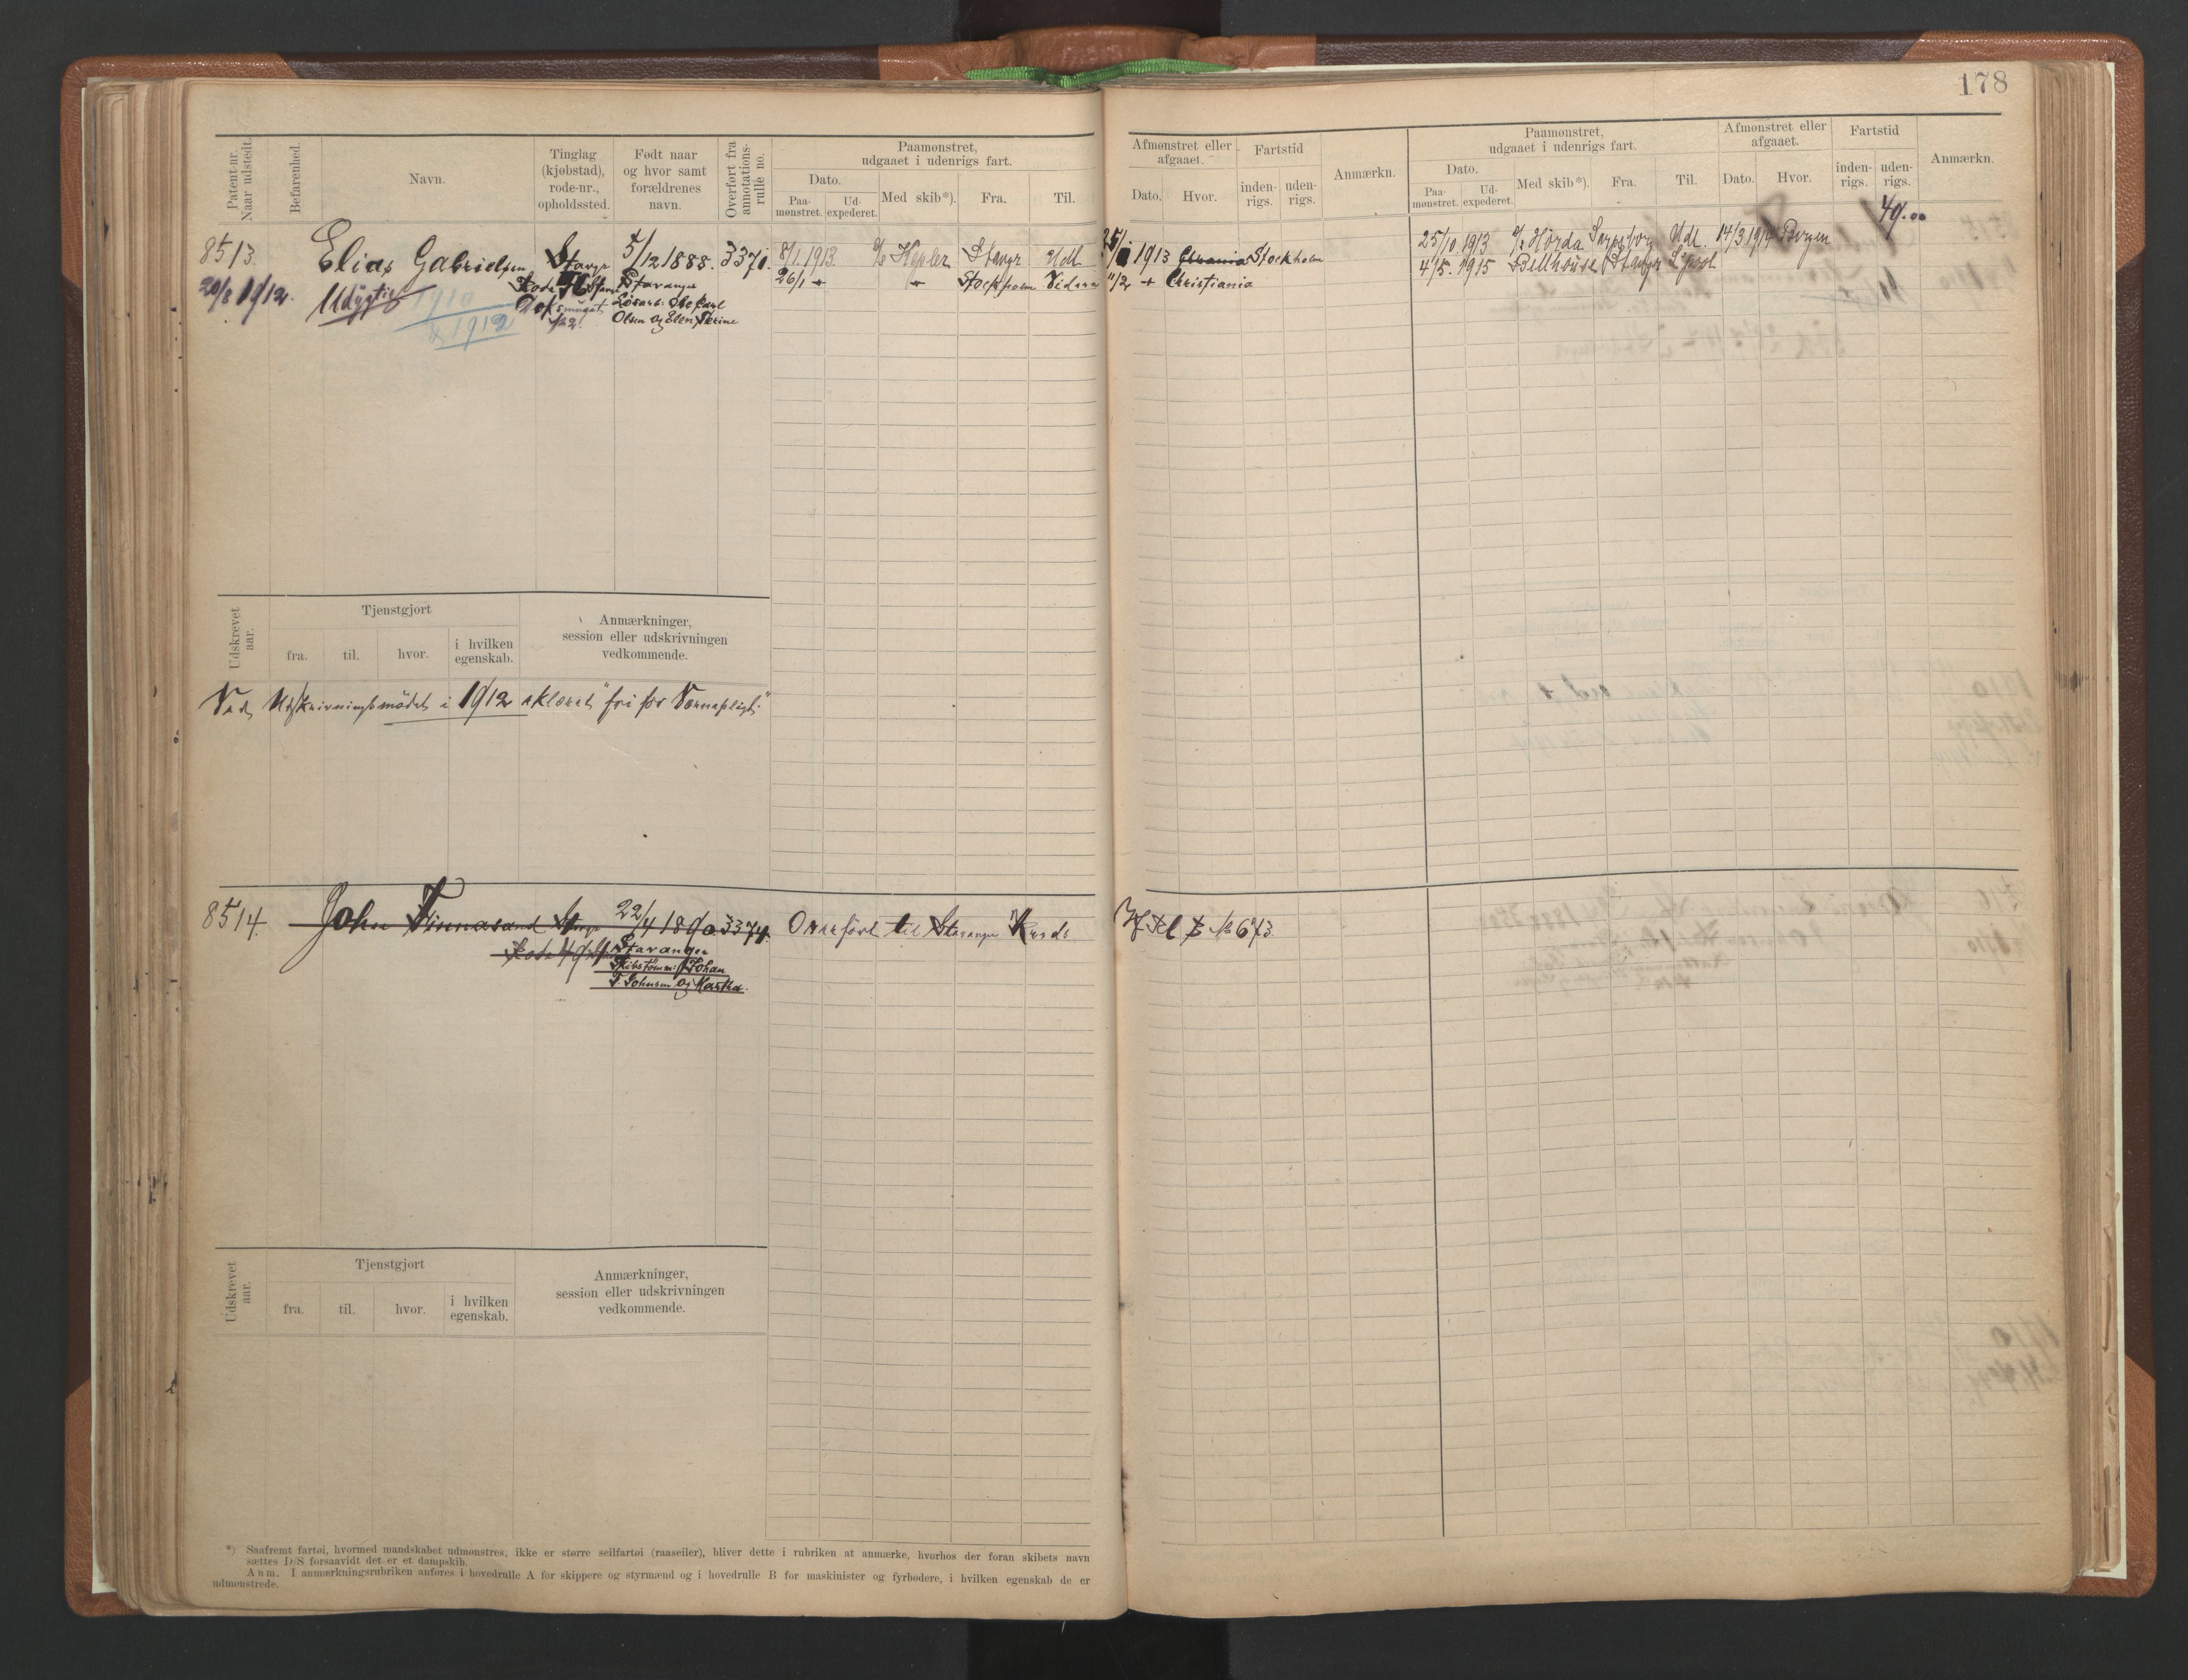 178
Patent-nr. Naar udstedt.
Befarenhed.
Navn.
Tinglag (kjøbstad), rode-nr., opholdssted.
Født naar og hvor samt forældrenes navn.
Overført fra annotations-rulle no.
Paamønstret, udgaaet i udenrigs fart.
Dato.
Paa-mønstret.
Ud-expederet.
Med skib*).
Fra.
Til.
Afmønstret eller afgaaet.
Dato.
Hvor.
Fartstid
inden-rigs.
uden-rigs.
Anmærkn.
Paamønstret, udgaaet i udenrigs fart.
Dato.
Paa-mønstret.
Ud-expederet.
Med skib*).
Fra.
Til.
Afmønstret eller afgaaet.
Dato.
Hvor.
Fartstid
inden-rigs.
uden-rigs.
Anmærkn.
49.00
8513. Elias Gabrielsen Stavgr 5/12 1888. 3370. 8/1 1913. Kepler Stavgr Udl 1913 Stockholm
25/10 1913 Hørda Sarpsborg Udl. 14/3 1914 Bergen
20/8 1912. Udygtig Stavanger 26/1 Stockholm 11/2 Christiania
4/5. 1915 Bellhouse Stavgr
1910
& 1912
Løsarb: Ole Carl
Olsen og Elen Serine
Udskrevet aar.
Tjenstgjort
fra.
til.
hvor.
i hvilken egenskab.
Anmærkninger, session eller udskrivningen vedkommende.
Ved Udskrivningsmødet i 1912 erklæret "fri for Værnepligt."
8514. John Finnasand Stavgr 22/4 1890 3374. Overført til Stavanger Krds No 673
Rode 4 Stavanger
Skibstømm: Johan
F. Johnsen og Martha.
Udskrevet aar.
Tjenstgjort
fra.
til.
hvor.
i hvilken egenskab.
Anmærkninger, session eller udskrivningen vedkommende.
*) Saafremt fartøi, hvormed mandskabet udmønstres, ikke er større seilfartøi (raaseiler), bliver dette i rubriken at anmærke, hvorhos der foran skibets navn
sættes D/S forsaavidt det er et dampskib.
Anm. I anmærkningsrubriken anføres i hovedrulle A for skippere og styrmænd og i hovedrulle B for maskinister og fyrbødere, i hvilken egenskab de er
udmønstrede.